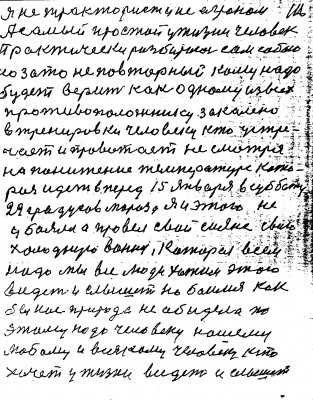 Я не тракторист и не агроном
А самый простой у жизни человек
Практически разбирался сам собою
но зато неповторный кому надо
будет верит как одному из всех
противоположнику закалено
в тренировки человеку кто устре-
чает и провожает не смотря
на понижение температуре кото-
рая идет вперед 15 января в субботу
29 градусов мороз, Я и этого не
убоялся провел свой сияние свою
холодную ванну, Которая всем
надо мы все люди хотим этого
видеть и слышит но боимся как
бы нас природа не обидела по
этому надо человеку нашему
любому и всякому человеку кто
хочет у жизни видеть и слышит